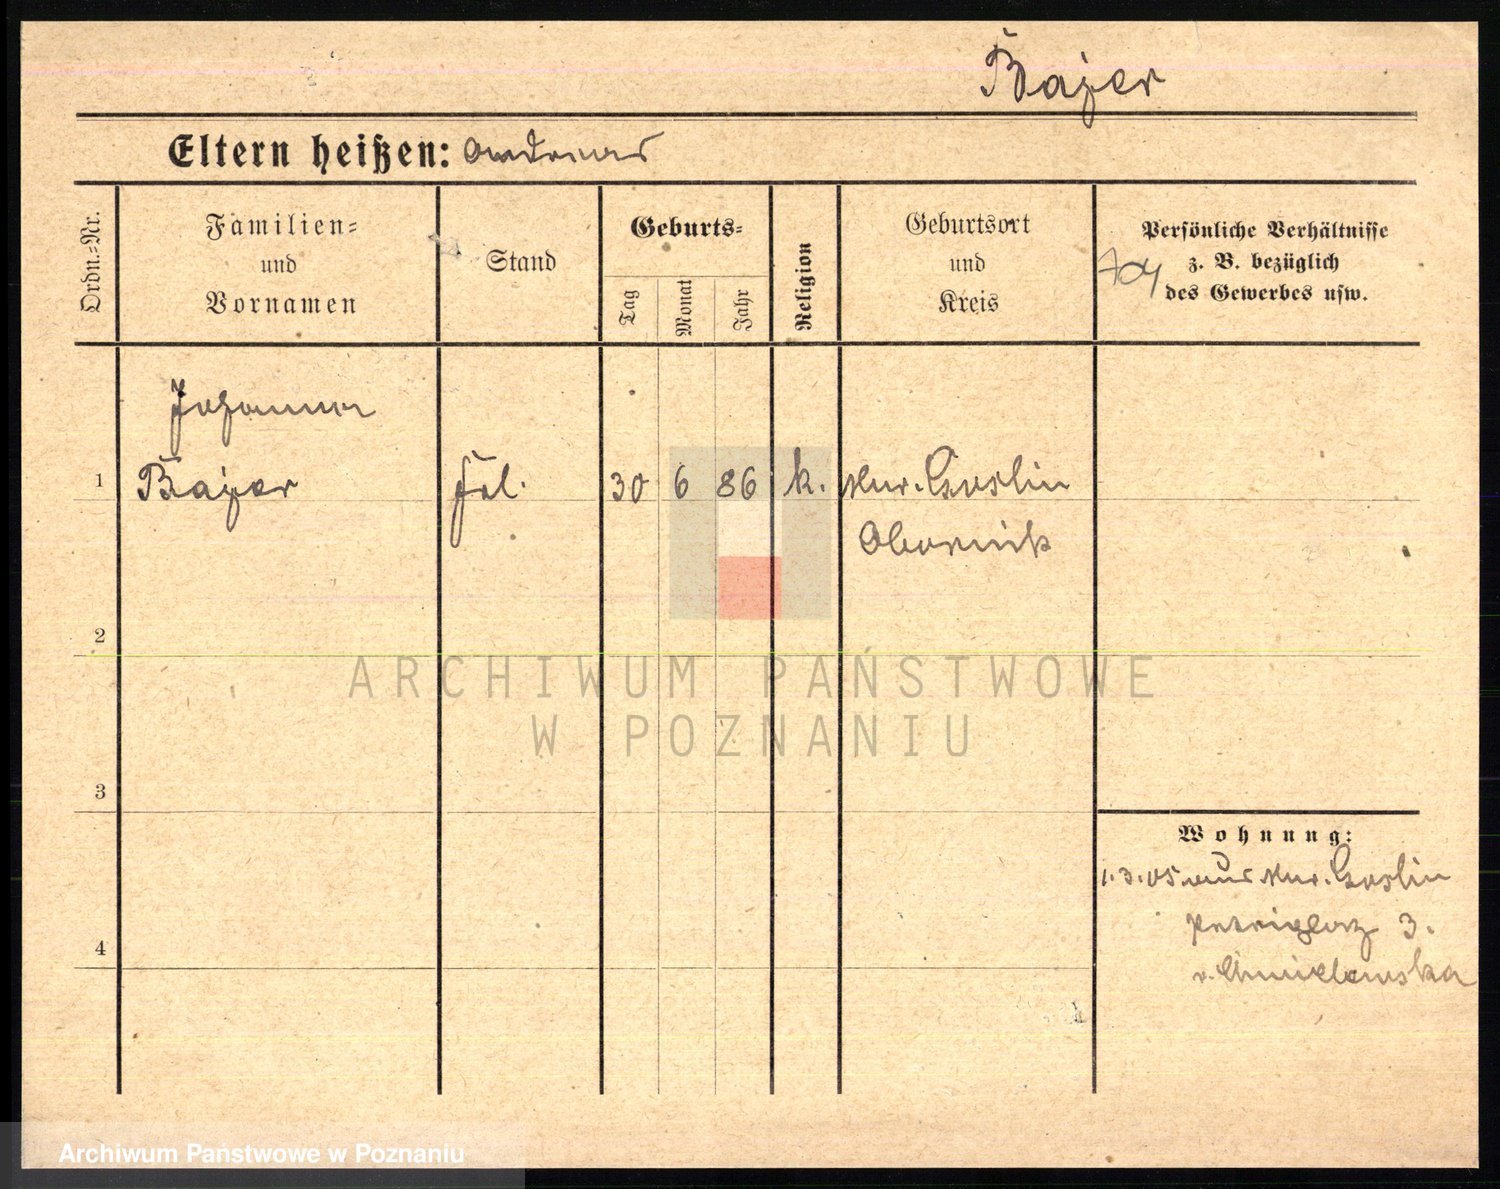 Bajer
Eltern heißen: Andreas
Ordn.-Nr.
Familien-
und
Vornamen
Stand
Geburts-
Tag
Monat
Jahr
Religion
Geburtsort
und
Kreis
Persönliche Verhältnisse
z. B. bezüglich
des Gewerbes usw.
Johanna
1 Bajer Frl. 30 6 86 k. Mur. Goslin
Obornik
2
3
4
Wohnung:
1.3.05 aus Mur. Goslin
Petriplatz 3.
v. Chmielewska
ARCHIWUM PAŃSTWOWE
W POZNANIU
Archiwum Państwowe w Poznaniu